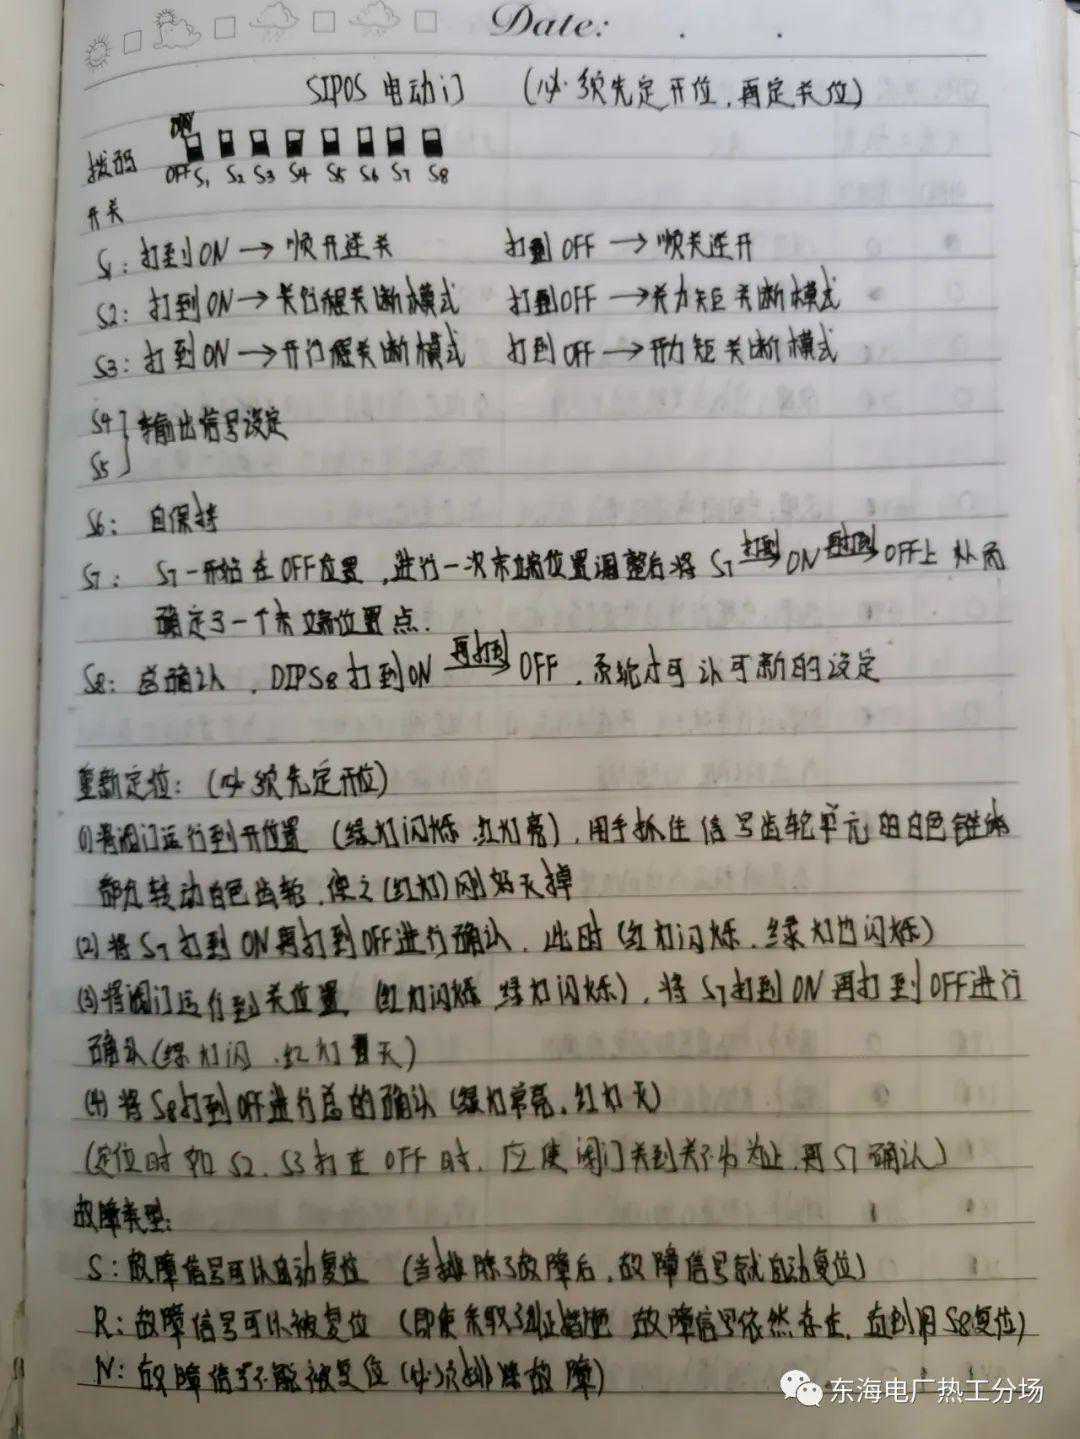 Date:
SIPOS 电动门 (必须先定开位,再定关位)
ON
拨码 OFF S1 S2 S3 S4 S5 S6 S7 S8
开关
S1: 打到ON → 顺开逆关 打到OFF → 顺关逆开
S2: 打到ON → 关行程关断模式 打到OFF → 关力矩关断模式
S3: 打到ON → 开行程关断模式 打到OFF → 开力矩关断模式
S4
输出信号设定
S5
S6: 自保持
S7: S7一开始在OFF位置,进行一次末端位置调整后将 S7 打到→ ON 再打到→ OFF上 从而
确定了一个末端位置点.
S8: 总确认, DIPS8打到ON 再打到→ OFF, 系统才可认可新的设定
重新定位: (必须先定开位)
(1)将阀门运行到开位置 (绿灯闪烁.红灯亮),用手抓住信号齿轮单元的白色
部位转动白色齿轮,使之(红灯)刚好灭掉
(2)将S7打到ON再打到OFF进行确认.此时(红灯闪烁.绿灯闪烁)
(3)将阀门运行到关位置 (红灯闪烁 绿灯闪烁),将S7打到ON再打到OFF进行
确认(绿灯闪.红灯灭)
(4)将S8打到OFF进行总的确认(绿灯常亮.红灯灭)
(定位时如S2.S3打在OFF时.应使阀门关到关不为止.再S7确认)
故障类型:
S:故障信号可以自动复位 (当排除了故障后,故障信号就自动复位)
R:故障信号可以被复位 (即使采取了纠正措施 故障信号依然存在.直到用S8复位)
N:故障信号不能被复位(必须排除故障)
东海电厂热工分场